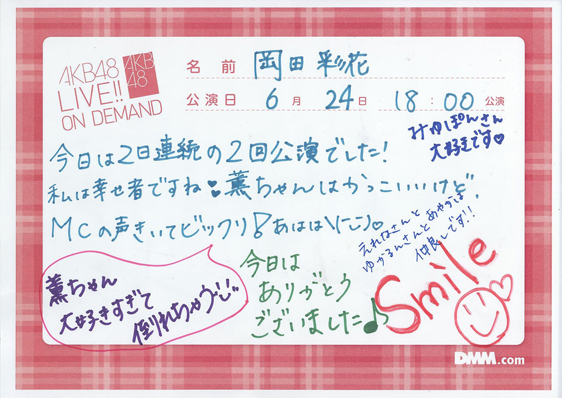 AKB48
LIVE!!
ON DEMAND
AKB
48
名前 岡田彩花
公演日 6月24日 18:00公演
みゆぽんさん
大好きです♥
今日は2日連続の2回公演でした!
私は幸せ者ですね♥薫ちゃんはかっこいいけど、
MCの声きいてビックリ!あはは
えれなさんと
ゆかるんさんとあやかは
仲良しです!!
薫ちゃん
大好きすぎて
倒れちゃう
今日は
ありがとう
ございました♪
Smile
DMM.com